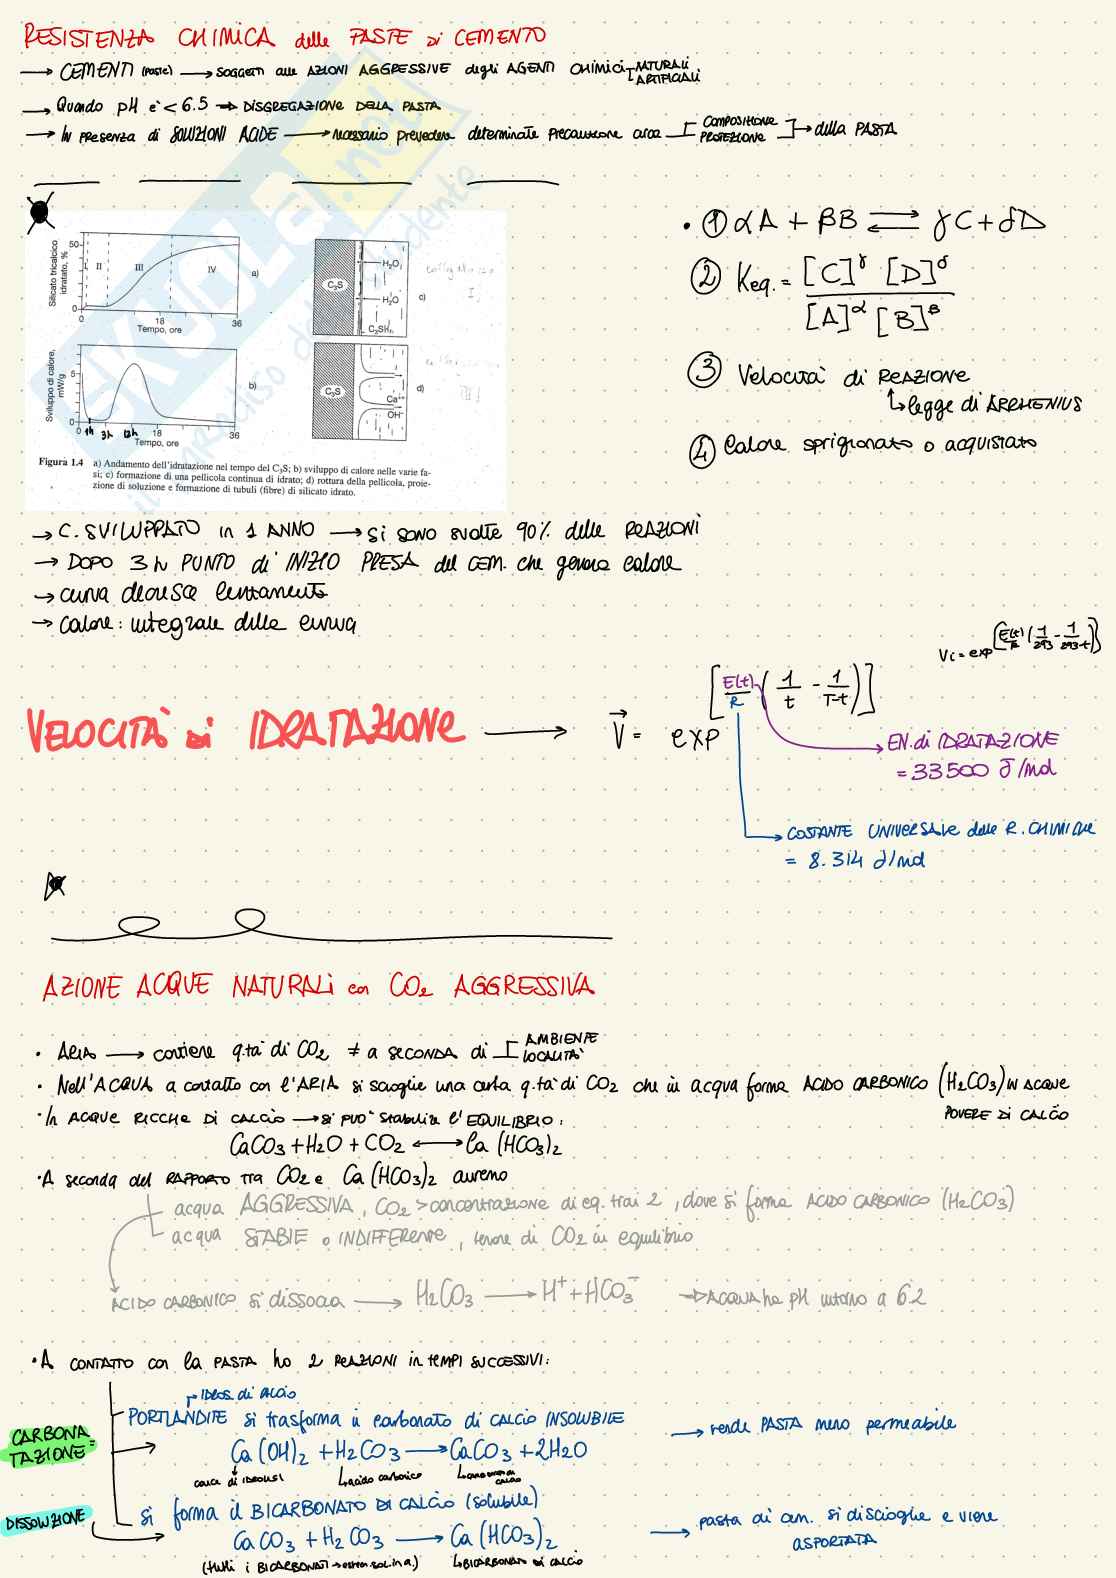 RESISTENZA CHIMICA delle PASTE di CEMENTO
→ CEMENTI (paste) → SOGGETTI alle AZIONI AGGRESSIVE degli AGENTI CHIMICI NATURALI ARTIFICIALI
→ Quando pH è < 6.5 → DISGREGAZIONE DELLA PASTA
→ In PRESENZA di SOLUZIONI ACIDE → necessario prevedere determinate precauzione circa COMPOSIZIONE PROTEZIONE → della PASTA
Silicato tricalcico idratato, %
50
0
I II III IV
a)
0 18 36
Tempo, ore
C₃S
H₂O
H₂O
C₂SHₙ
c)
Sviluppo di calore, mW/g
5
0
b)
0 1h 3h 12h 18 36
Tempo, ore
C₃S
Ca⁺⁺
OH⁻
d)
Figura 1.4 a) Andamento dell'idratazione nel tempo del C₃S; b) sviluppo di calore nelle varie fa-
si; c) formazione di una pellicola continua di idrato; d) rottura della pellicola, proie-
zione di soluzione e formazione di tubuli (fibre) di silicato idrato.
• ① αA + βB ⇄ γC + δD
② Keq. = [C]^γ [D]^δ / [A]^α [B]^β
③ Velocità di REAZIONE
↳ legge di ARRHENIUS
④ Calore sprigionato o acquistato
→ C. SVILUPPATO in 1 ANNO → si sono svolte 90% delle REAZIONI
→ DOPO 3h PUNTO di INIZIO PRESA del CEM. che genera calore
→ curva decresce lentamente
→ calore: integrale della curva
Vi = exp [E(t)/R (1/293 - 1/293-t)]
VELOCITÀ di IDRATAZIONE → V = exp [E(t)/R (1/t - 1/T-t)]
EN. di IDRATAZIONE
= 33500 J/mol
COSTANTE UNIVERSALE delle R. CHIMICHE
= 8.314 J/mol
AZIONE ACQUE NATURALI con CO₂ AGGRESSIVA
• ARIA → contiene q.tà di CO₂ ≠ a SECONDA di AMBIENTE LOCALITÀ
• Nell'ACQUA a contatto con l'ARIA si scioglie una certa q.tà di CO₂ che in acqua forma ACIDO CARBONICO (H₂CO₃) IN ACQUE
POVERE DI CALCIO
• In ACQUE RICCHE DI CALCIO → si può stabilire l'EQUILIBRIO:
CaCO₃ + H₂O + CO₂ ↔ Ca(HCO₃)₂
• A seconda del RAPPORTO TRA CO₂ e Ca(HCO₃)₂ avremo
acqua AGGRESSIVA, CO₂ > concentrazione di eq. tra i 2, dove si forma ACIDO CARBONICO (H₂CO₃)
acqua STABILE o INDIFFERENTE, tenore di CO₂ in equilibrio
ACIDO CARBONICO si dissocia → H₂CO₃ → H⁺ + HCO₃⁻ → ACQUA ha pH intorno a 6.2
• A CONTATTO con la PASTA ho 2 REAZIONI in TEMPI SUCCESSIVI:
IDROS. di CALCIO
PORTLANDITE si trasforma in carbonato di CALCIO INSOLUBILE → rende PASTA meno permeabile
CARBONA
TAZIONE=
Ca(OH)₂ + H₂CO₃ → CaCO₃ + 2H₂O
calce di IDROLISI ↳ acido carbonico ↳ carbonato di calcio
si forma il BICARBONATO DI CALCIO (solubile)
DISSOLUZIONE
CaCO₃ + H₂CO₃ → Ca(HCO₃)₂ → pasta di cem. si discioglie e viene
ASPORTATA
(tutti i BICARBONATI → sol. in a.) ↳ BICARBONATO DI CALCIO